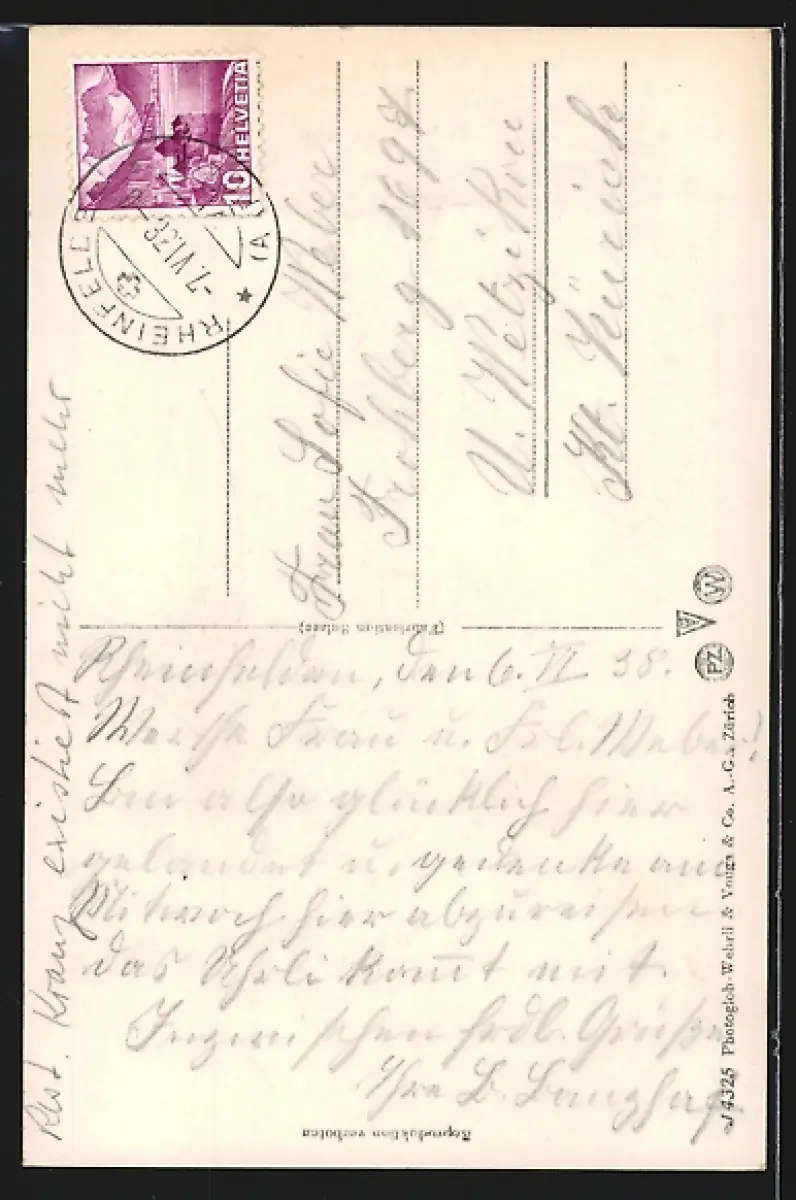 HELVETIA
10
RHEINFELDEN
-7.VI.38
Frau Sofie Weber
Frohberg 1697.
U. Wetzikon
Kt. Zürich
(Fabrication Suisse)
PZ
W
Rheinfelden, den 6. VI 38.
Werthe Frau u. Frl. Weber!
Bin also glücklich hier
gelandet u. gedenke am
Mitwoch hier abzureisen
das Uhrli kom̅t mit.
Inzwischen frdl. Grüße
Ihre B. Banzhaf.
Rest. Kranz existiert nicht mehr
Reproduktion verboten
J 4325 Photoglob-Wehrli & Vouga & Co. A.-G., Zürich